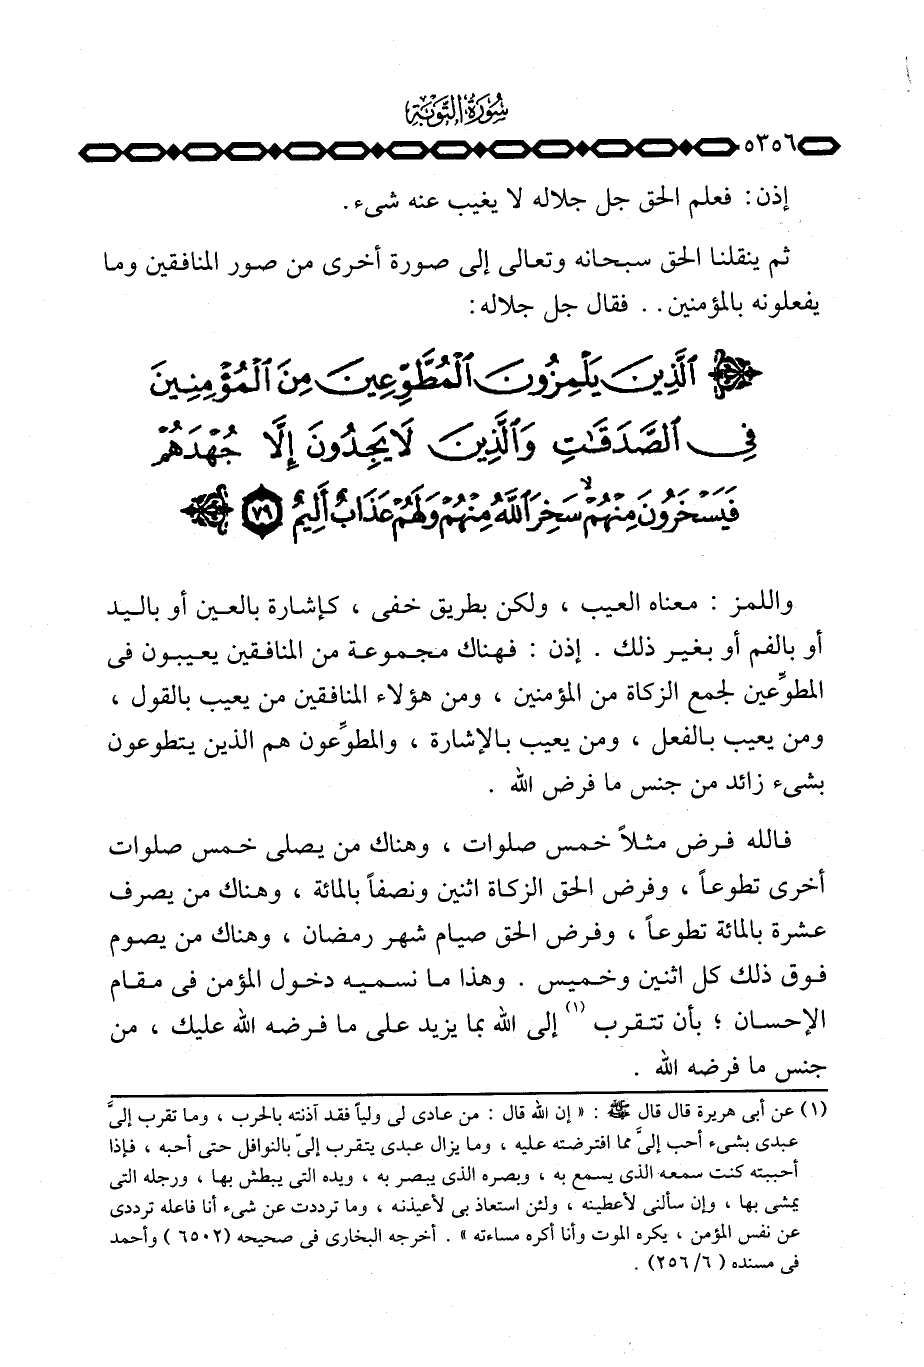 سُورَةُ التَّوْبَةِ
٥٣٥٦
إذن: فعلم الحق جل جلاله لا يغيب عنه شىء.
ثم ينقلنا الحق سبحانه وتعالى إلى صورة أخرى من صور المنافقين وما
يفعلونه بالمؤمنين.. فقال جل جلاله:
ٱلَّذِينَ يَلْمِزُونَ ٱلْمُطَّوِّعِينَ مِنَ ٱلْمُؤْمِنِينَ
فِى ٱلصَّدَقَـٰتِ وَٱلَّذِينَ لَا يَجِدُونَ إِلَّا جُهْدَهُمْ
فَيَسْخَرُونَ مِنْهُمْ ۙ سَخِرَ ٱللَّهُ مِنْهُمْ وَلَهُمْ عَذَابٌ أَلِيمٌ ٧٩
واللمز : معناه العيب ، ولكن بطريق خفى ، كإشارة بالعين أو باليد
أو بالفم أو بغير ذلك . إذن : فهناك مجموعة من المنافقين يعيبون فى
المطوِّعين لجمع الزكاة من المؤمنين ، ومن هؤلاء المنافقين من يعيب بالقول ،
ومن يعيب بالفعل ، ومن يعيب بالإشارة ، والمطوِّعون هم الذين يتطوعون
بشىء زائد من جنس ما فرض الله .
فالله فرض مثلاً خمس صلوات ، وهناك من يصلى خمس صلوات
أخرى تطوعاً ، وفرض الحق الزكاة اثنين ونصفاً بالمائة ، وهناك من يصرف
عشرة بالمائة تطوعاً ، وفرض الحق صيام شهر رمضان ، وهناك من يصوم
فوق ذلك كل اثنين وخميس . وهذا ما نسميه دخول المؤمن فى مقام
الإحسان ؛ بأن تتقرب (١) إلى الله بما يزيد على ما فرضه الله عليك ، من
جنس ما فرضه الله .
(١) عن أبى هريرة قال قال ﷺ : « إن الله قال : من عادى لى ولياً فقد آذنته بالحرب ، وما تقرب إلىَّ
عبدى بشىء أحب إلىَّ مما افترضته عليه ، وما يزال عبدى يتقرب إلىّ بالنوافل حتى أحبه ، فإذا
أحببته كنت سمعه الذى يسمع به ، وبصره الذى يبصر به ، ويده التى يبطش بها ، ورجله التى
يمشى بها ، وإن سألنى لأعطينه ، ولئن استعاذ بى لأعيذنه ، وما ترددت عن شىء أنا فاعله ترددى
عن نفس المؤمن ، يكره الموت وأنا أكره مساءته » . أخرجه البخارى فى صحيحه (٦٥٠٢ ) وأحمد
فى مسنده ( ٦/ ٢٥٦) .